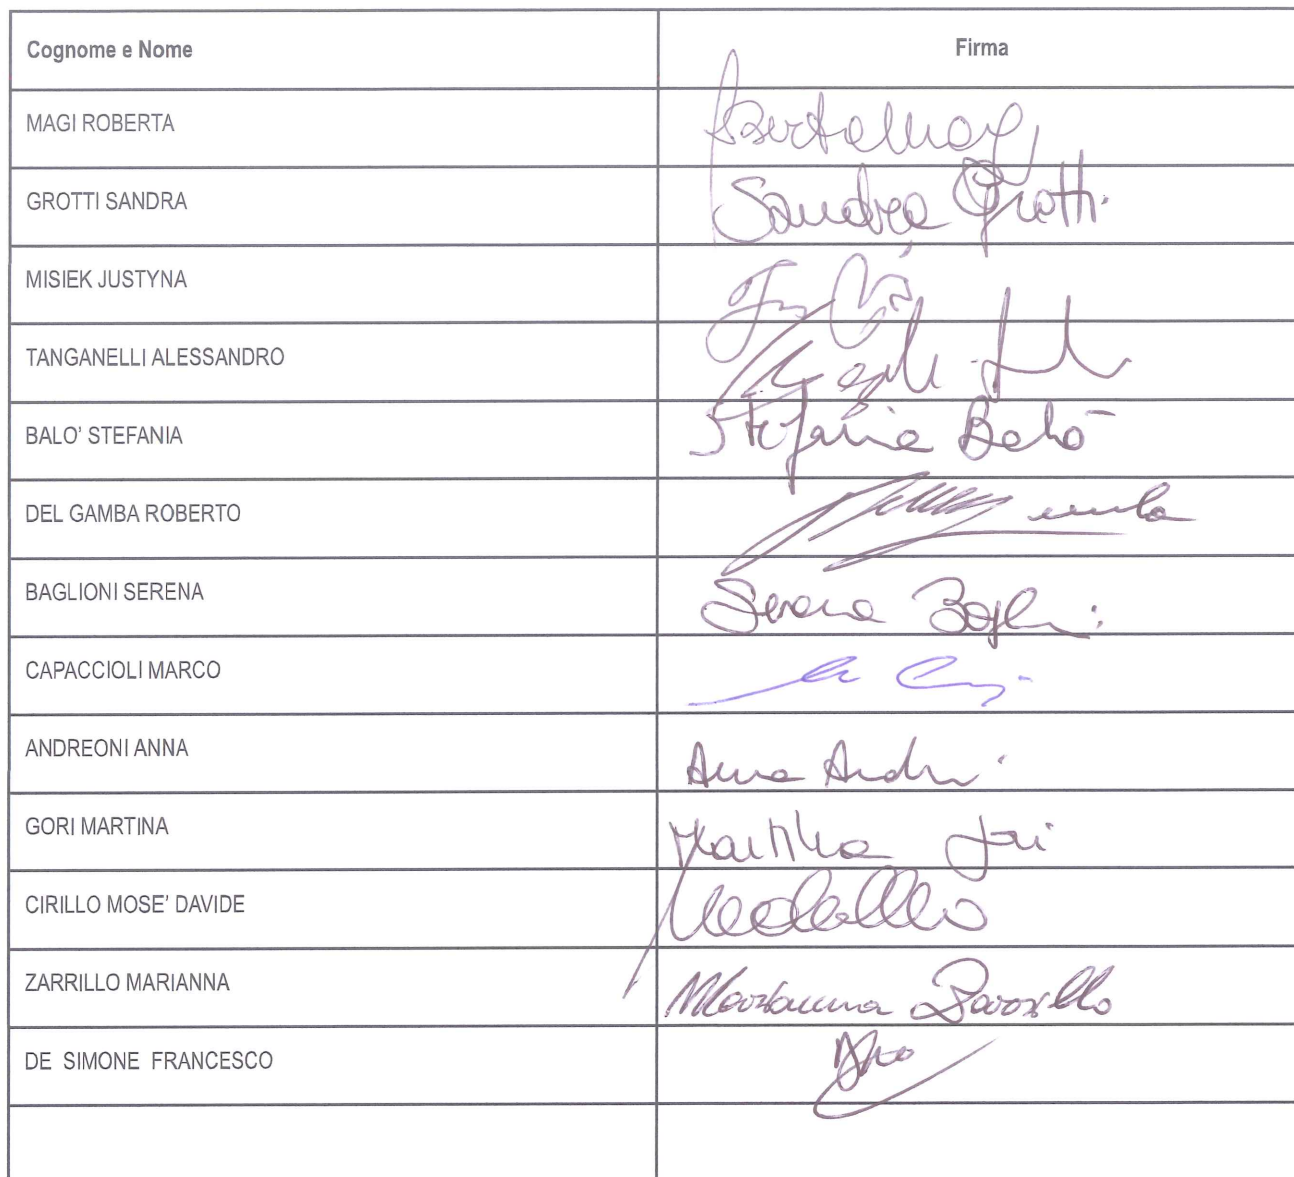 Cognome e Nome Firma
MAGI ROBERTA
GROTTI SANDRA Sandra Grotti
MISIEK JUSTYNA
TANGANELLI ALESSANDRO
BALO' STEFANIA Stefania Balò
DEL GAMBA ROBERTO
BAGLIONI SERENA Serena
CAPACCIOLI MARCO
ANDREONI ANNA Anna
GORI MARTINA Martina Gori
CIRILLO MOSE' DAVIDE
ZARRILLO MARIANNA Marianna Zarrillo
DE SIMONE FRANCESCO